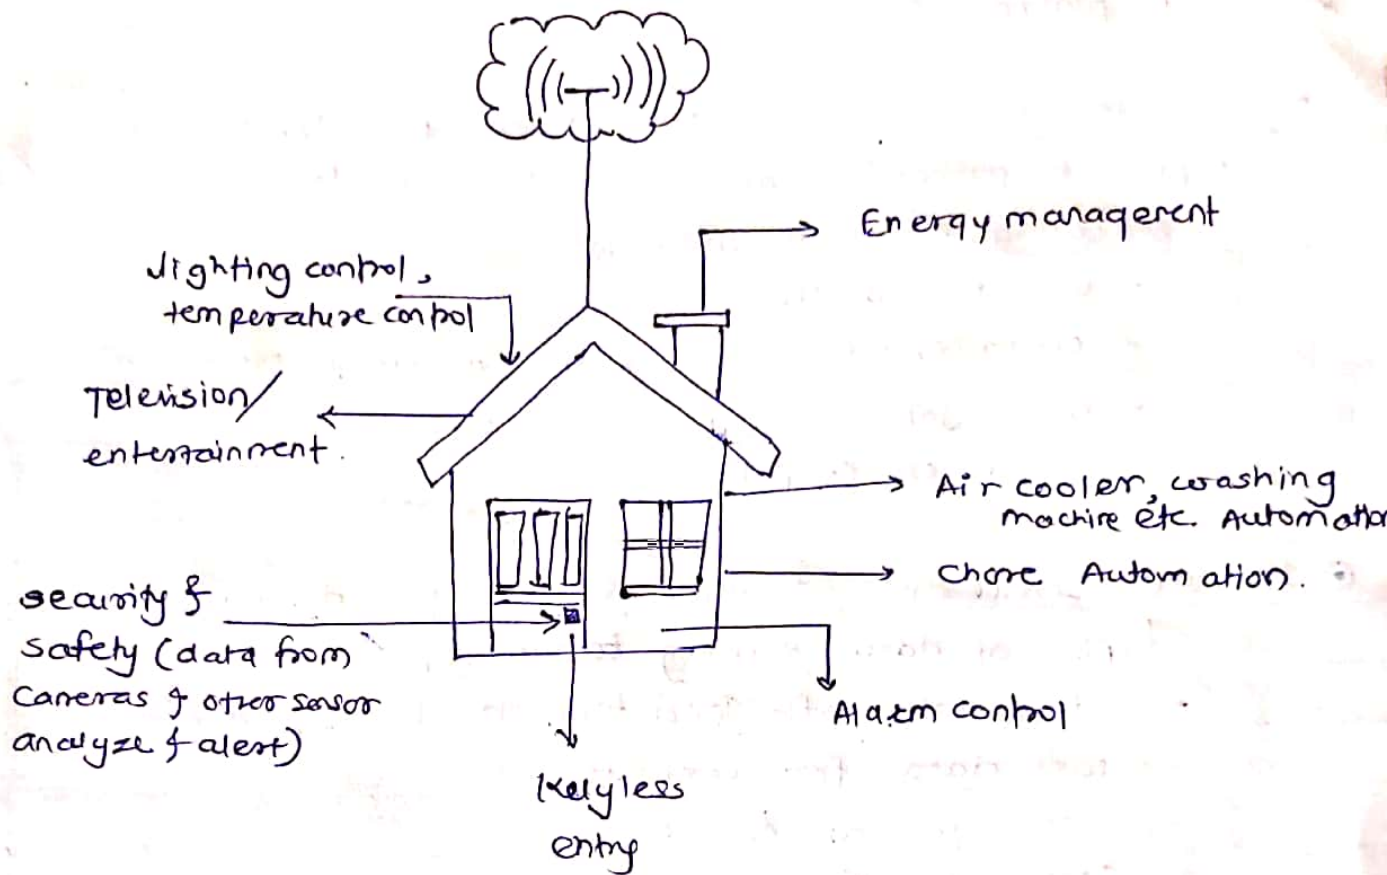 Energy management
lighting control,
temperature control
Television/
entertainment.
Air cooler, washing
machine etc. Automation
Chore Automation.
security &
safety (data from
cameras & other sensor
analyze & alert)
Alarm control
Keyless
entry